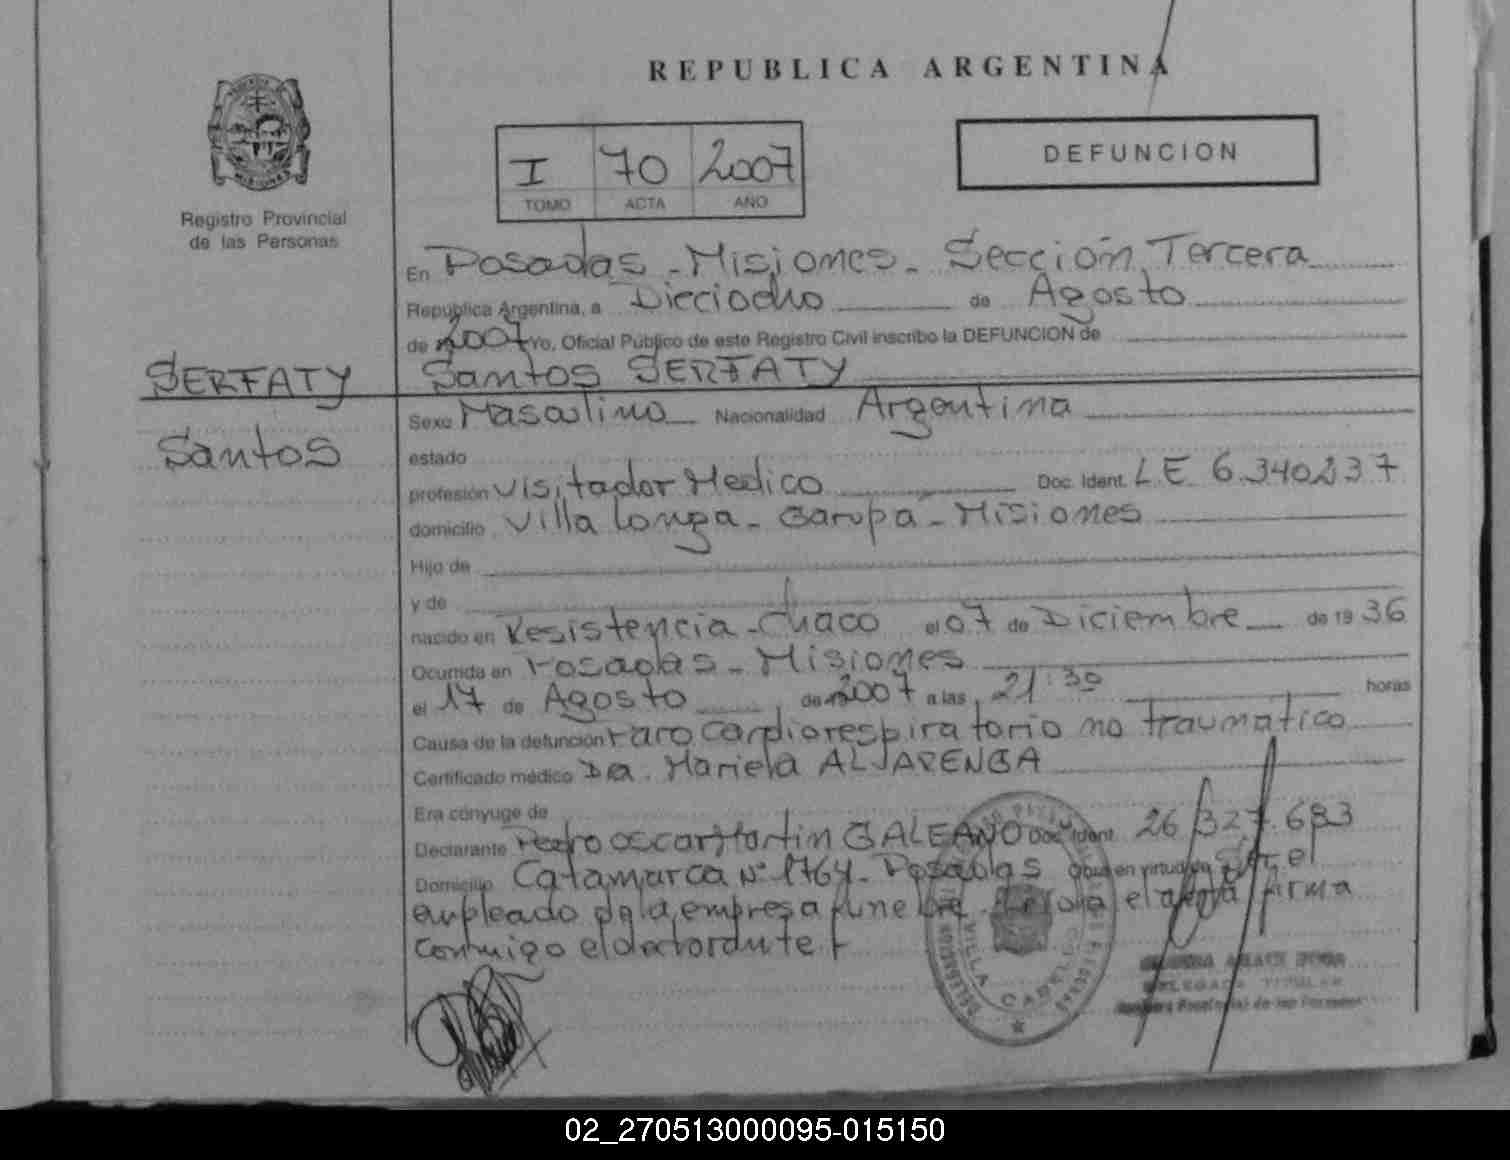 REPUBLICA ARGENTINA
I 70 2007
TOMO ACTA AÑO
DEFUNCION
MISIONES
Registro Provincial
de las Personas
En Posadas - Misiones - Sección Tercera
República Argentina, a Dieciocho de Agosto
de 2007 Yo, Oficial Público de este Registro Civil inscribo la DEFUNCION de
SERFATY
Santos SERFATY
Santos
Sexo Masculino Nacionalidad Argentina
estado
profesión Visitador Medico Doc. Ident. L.E 6.340237
domicilio Villa Longa - Garupa - Misiones
Hijo de
y de
nacido en Resistencia - Chaco el 07 de Diciembre de 19 36
Ocurrida en Posadas - Misiones
el 17 de Agosto de 2007 a las 21:30 horas
Causa de la defunción Paro cardiorespiratorio no traumatico
Certificado médico Dra. Mariela ALVARENGA
Era cónyuge de
Declarante Pedro oscar Martin GALEANO Doc. Ident. 26.327.683
Domicilio Catamarca N° 1764 - Posadas Obra en virtud de Ser el
empleado de la empresa funebre el acta firma
conmigo el declarante
VILLA CABELLO
DELEGADA TITULAR
Registro Provincial de las Personas
02_270513000095-015150